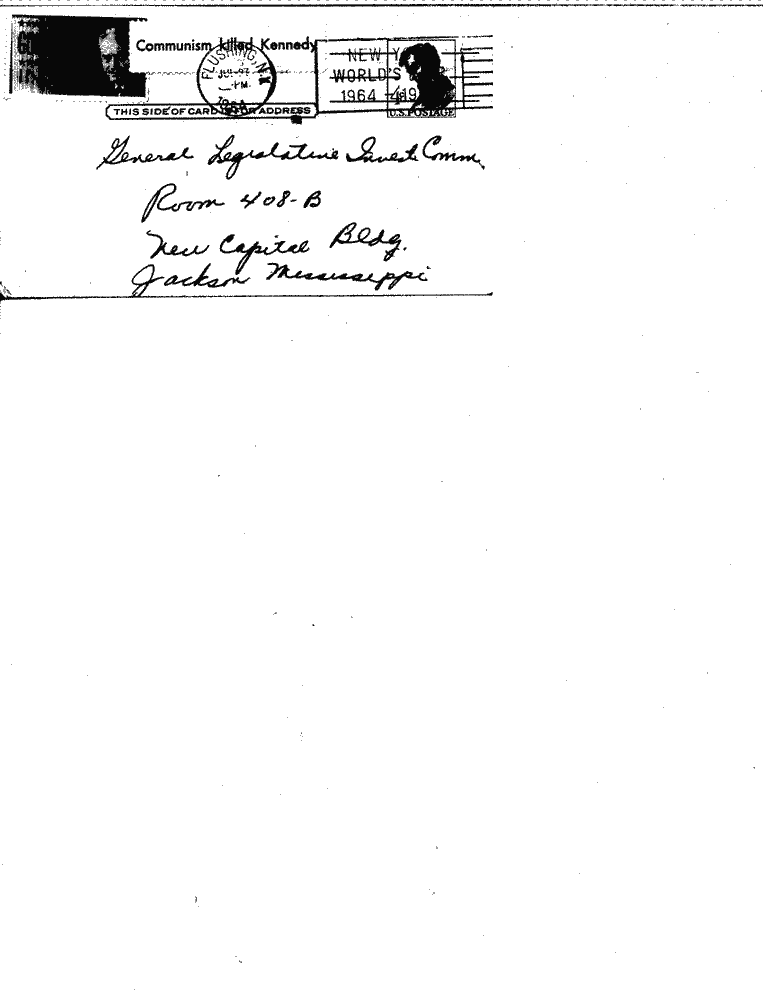 Communism killed Kennedy
FLUSHING, N.Y.
PM
1964
NEW
WORLD'S
1964
THIS SIDE OF CARD IS FOR ADDRESS
U.S. POSTAGE
General Legislative Invest. Comm.
Room 408-B
New Capital Bldg.
Jackson Mississippi